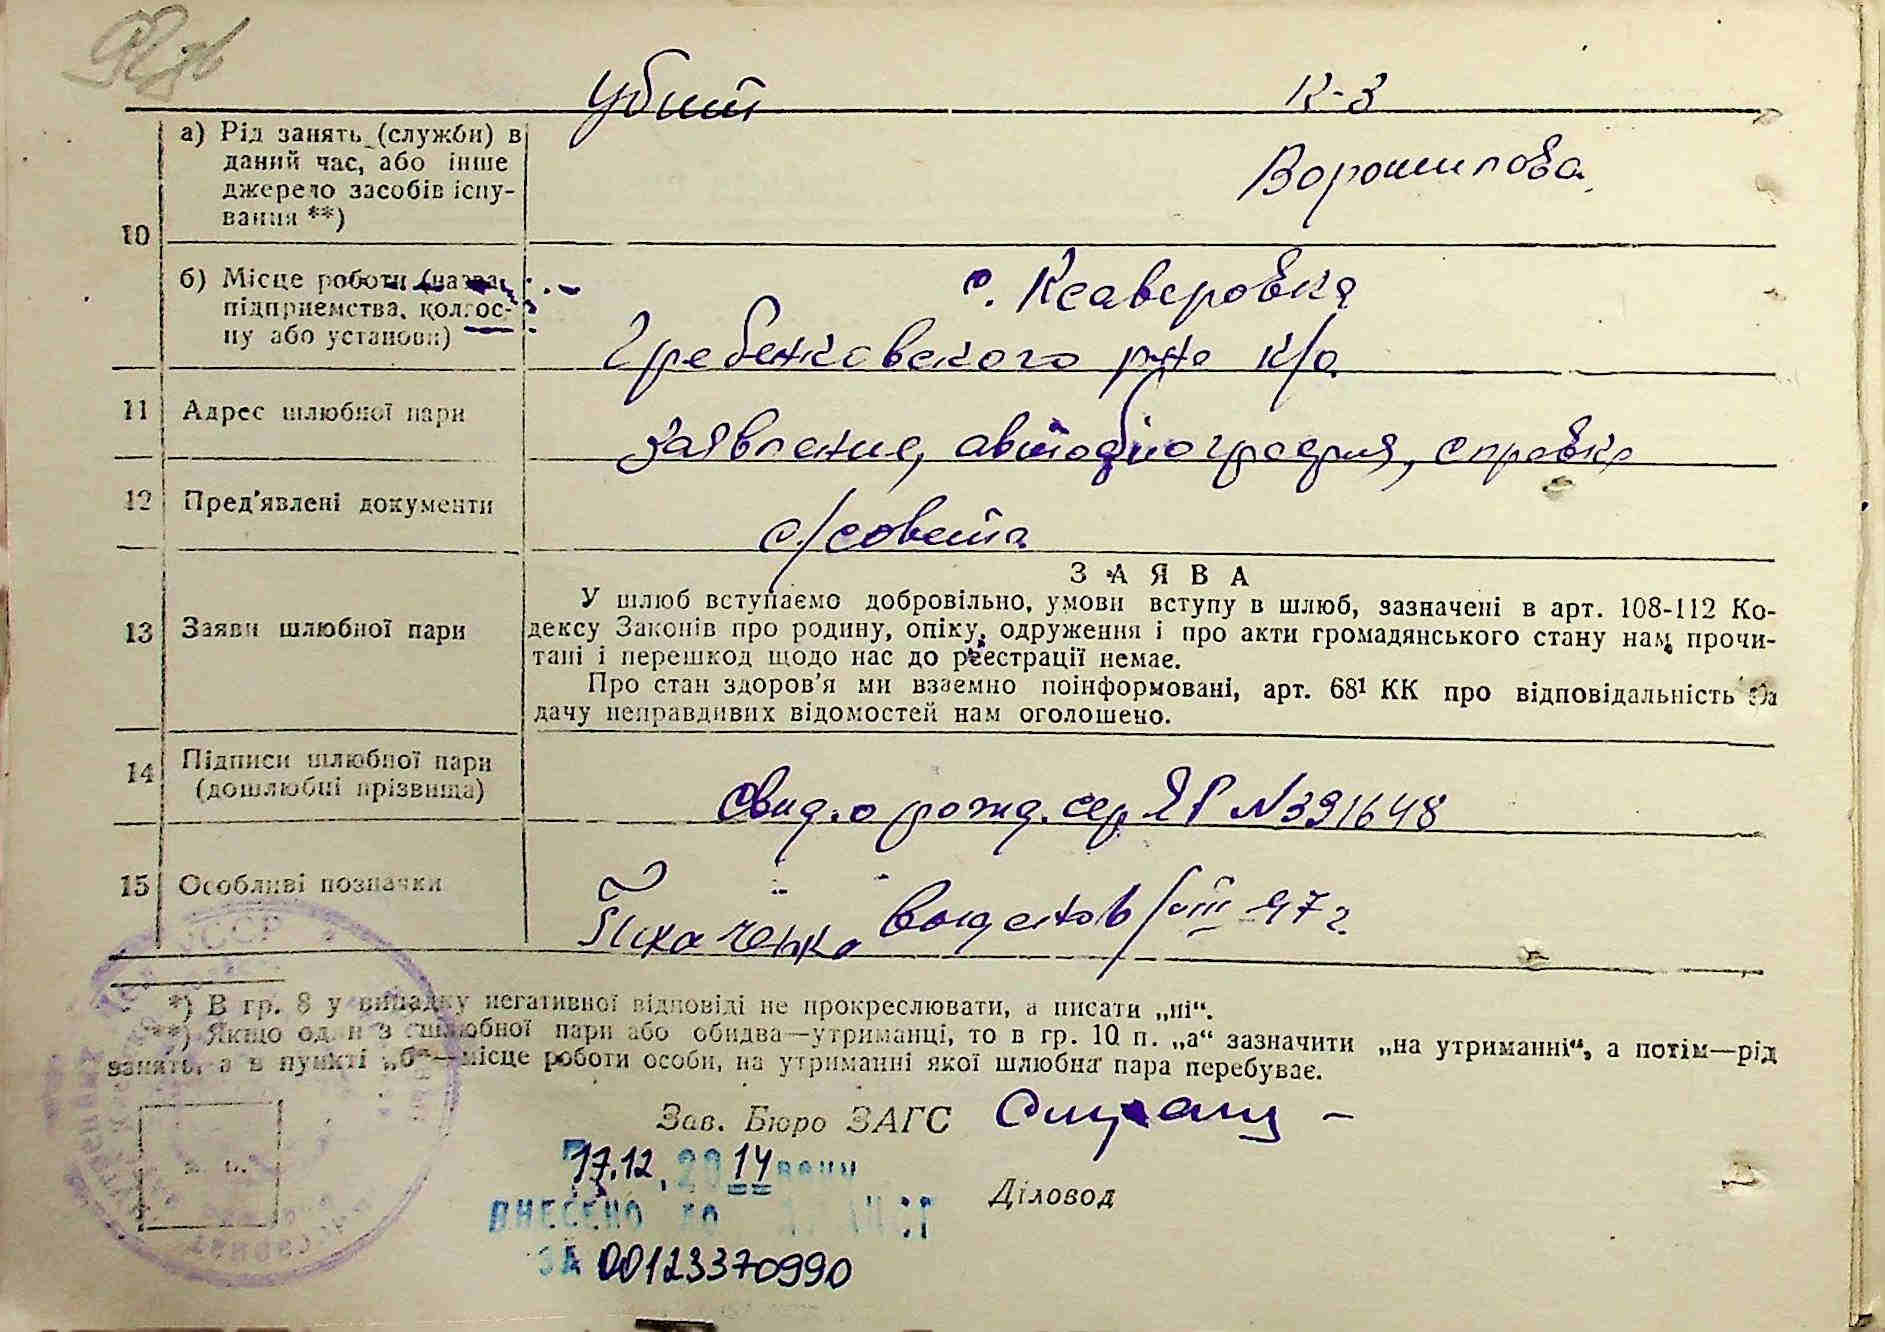 убит
К-з
Ворошилова
10 а) Рід занять (служби) в
даний час, або інше
джерело засобів існу-
вання **)
с. Ксаверовка
б) Місце роботи (назва
підприємства, колгос-
пу або установи)
Гребенковского р-на к/о
11 Адрес шлюбної пари
заявление, автобиография, справка
12 Пред'явлені документи
с/совета
ЗАЯВА
13 Заяви шлюбної пари
У шлюб вступаємо добровільно, умови вступу в шлюб, зазначені в арт. 108-112 Ко-
дексу Законів про родину, опіку, одруження і про акти громадянського стану нам прочи-
тані і перешкод щодо нас до реєстрації немає.
Про стан здоров'я ми взаємно поінформовані, арт. 68¹ КК про відповідальність за
дачу неправдивих відомостей нам оголошено.
14 Підписи шлюбної пари
(дошлюбні прізвища)
Свид. о рожд. сер ЯР №391648
15 Особливі позначки
47 г.
*) В гр. 8 у випадку негативної відповіді не прокреслювати, а писати „ні“.
**) Якщо один з шлюбної пари або обидва—утриманці, то в гр. 10 п. „а“ зазначити „на утриманні“, а потім—рід
занять, а в пункті „б“—місце роботи особи, на утриманні якої шлюбна пара перебуває.
Зав. Бюро ЗАГС
17.12.2014
Діловод
ВНЕСЕНО ДО
ЗА 00123370990
УССР